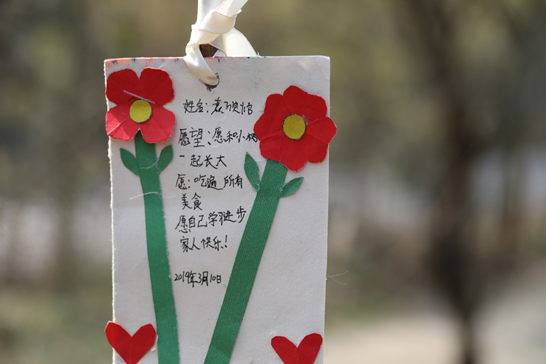 姓名:袁
愿望、愿和小伙
一起长大
愿:吃遍所有
美食
愿自己学习进步
家人快乐!
2019年3月10日